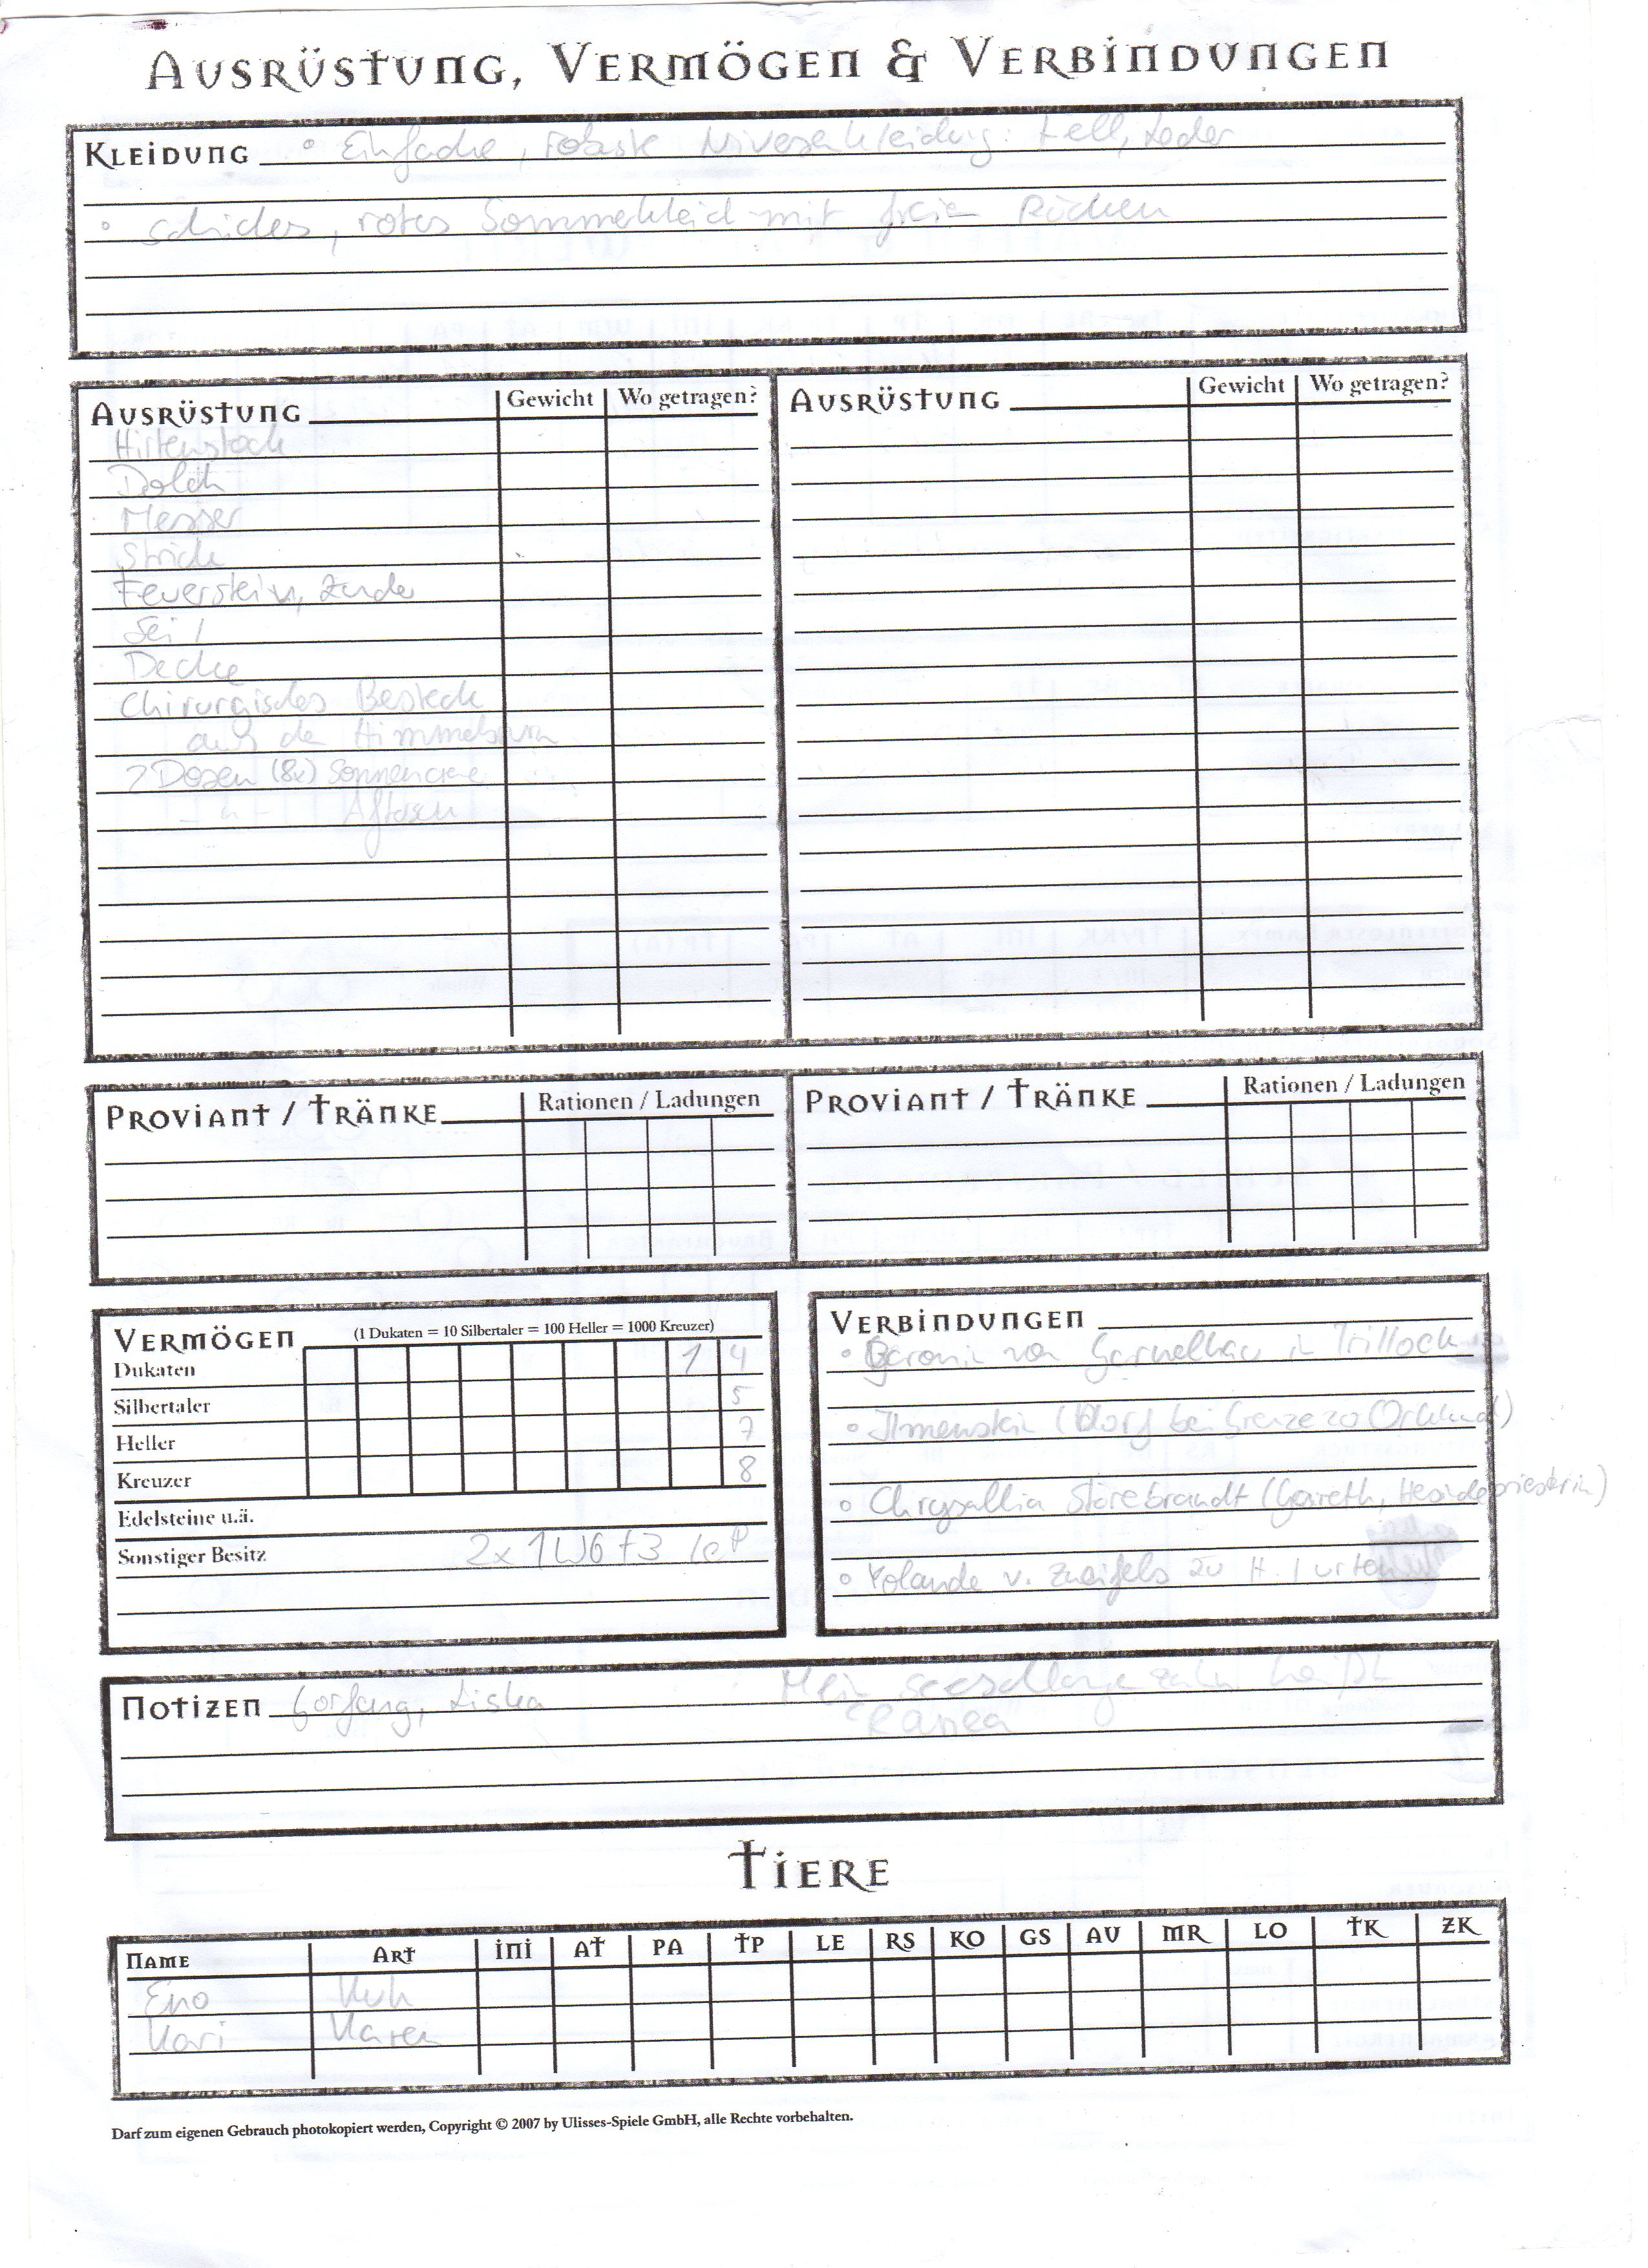 AUSRÜSTUNG, VERMÖGEN & VERBINDUNGEN
KLEIDUNG ° Einfache, robuste Nivesenkleidung: Fell, Leder
° schickes, rotes Sommerkleid mit freien Rücken
AUSRÜSTUNG Gewicht Wo getragen? AUSRÜSTUNG Gewicht Wo getragen?
Hirtenstock
Dolch
Messer
Stricke
Feuerstein, Zunder
Seil
Decke
Chirurgisches Besteck
aus der
2 Dosen (8x) Sonnencreme
PROVIANT / TRÄNKE Rationen / Ladungen PROVIANT / TRÄNKE Rationen / Ladungen
VERMÖGEN (1 Dukaten = 10 Silbertaler = 100 Heller = 1000 Kreuzer)
Dukaten 1 4
Silbertaler 5
Heller 7
Kreuzer 8
Edelsteine u.ä.
Sonstiger Besitz 2x 1W6+3 LeP
VERBINDUNGEN
° Baronin von in Trillock
° Ilmenstein (Dorf bei Grenze zo Orkland)
° Chrysallia Storebrandt (Gareth, Hesindepriesterin)
° Yolande v. Zweifels zu H.
NOTIZEN Gorfang, Liska
Mein heißt
Ranea
TIERE
NAME ART INI AT PA TP LE RS KO GS AU MR LO TK ZK
Eno Kuh
Kari Karen
Darf zum eigenen Gebrauch photokopiert werden, Copyright © 2007 by Ulisses-Spiele GmbH, alle Rechte vorbehalten.